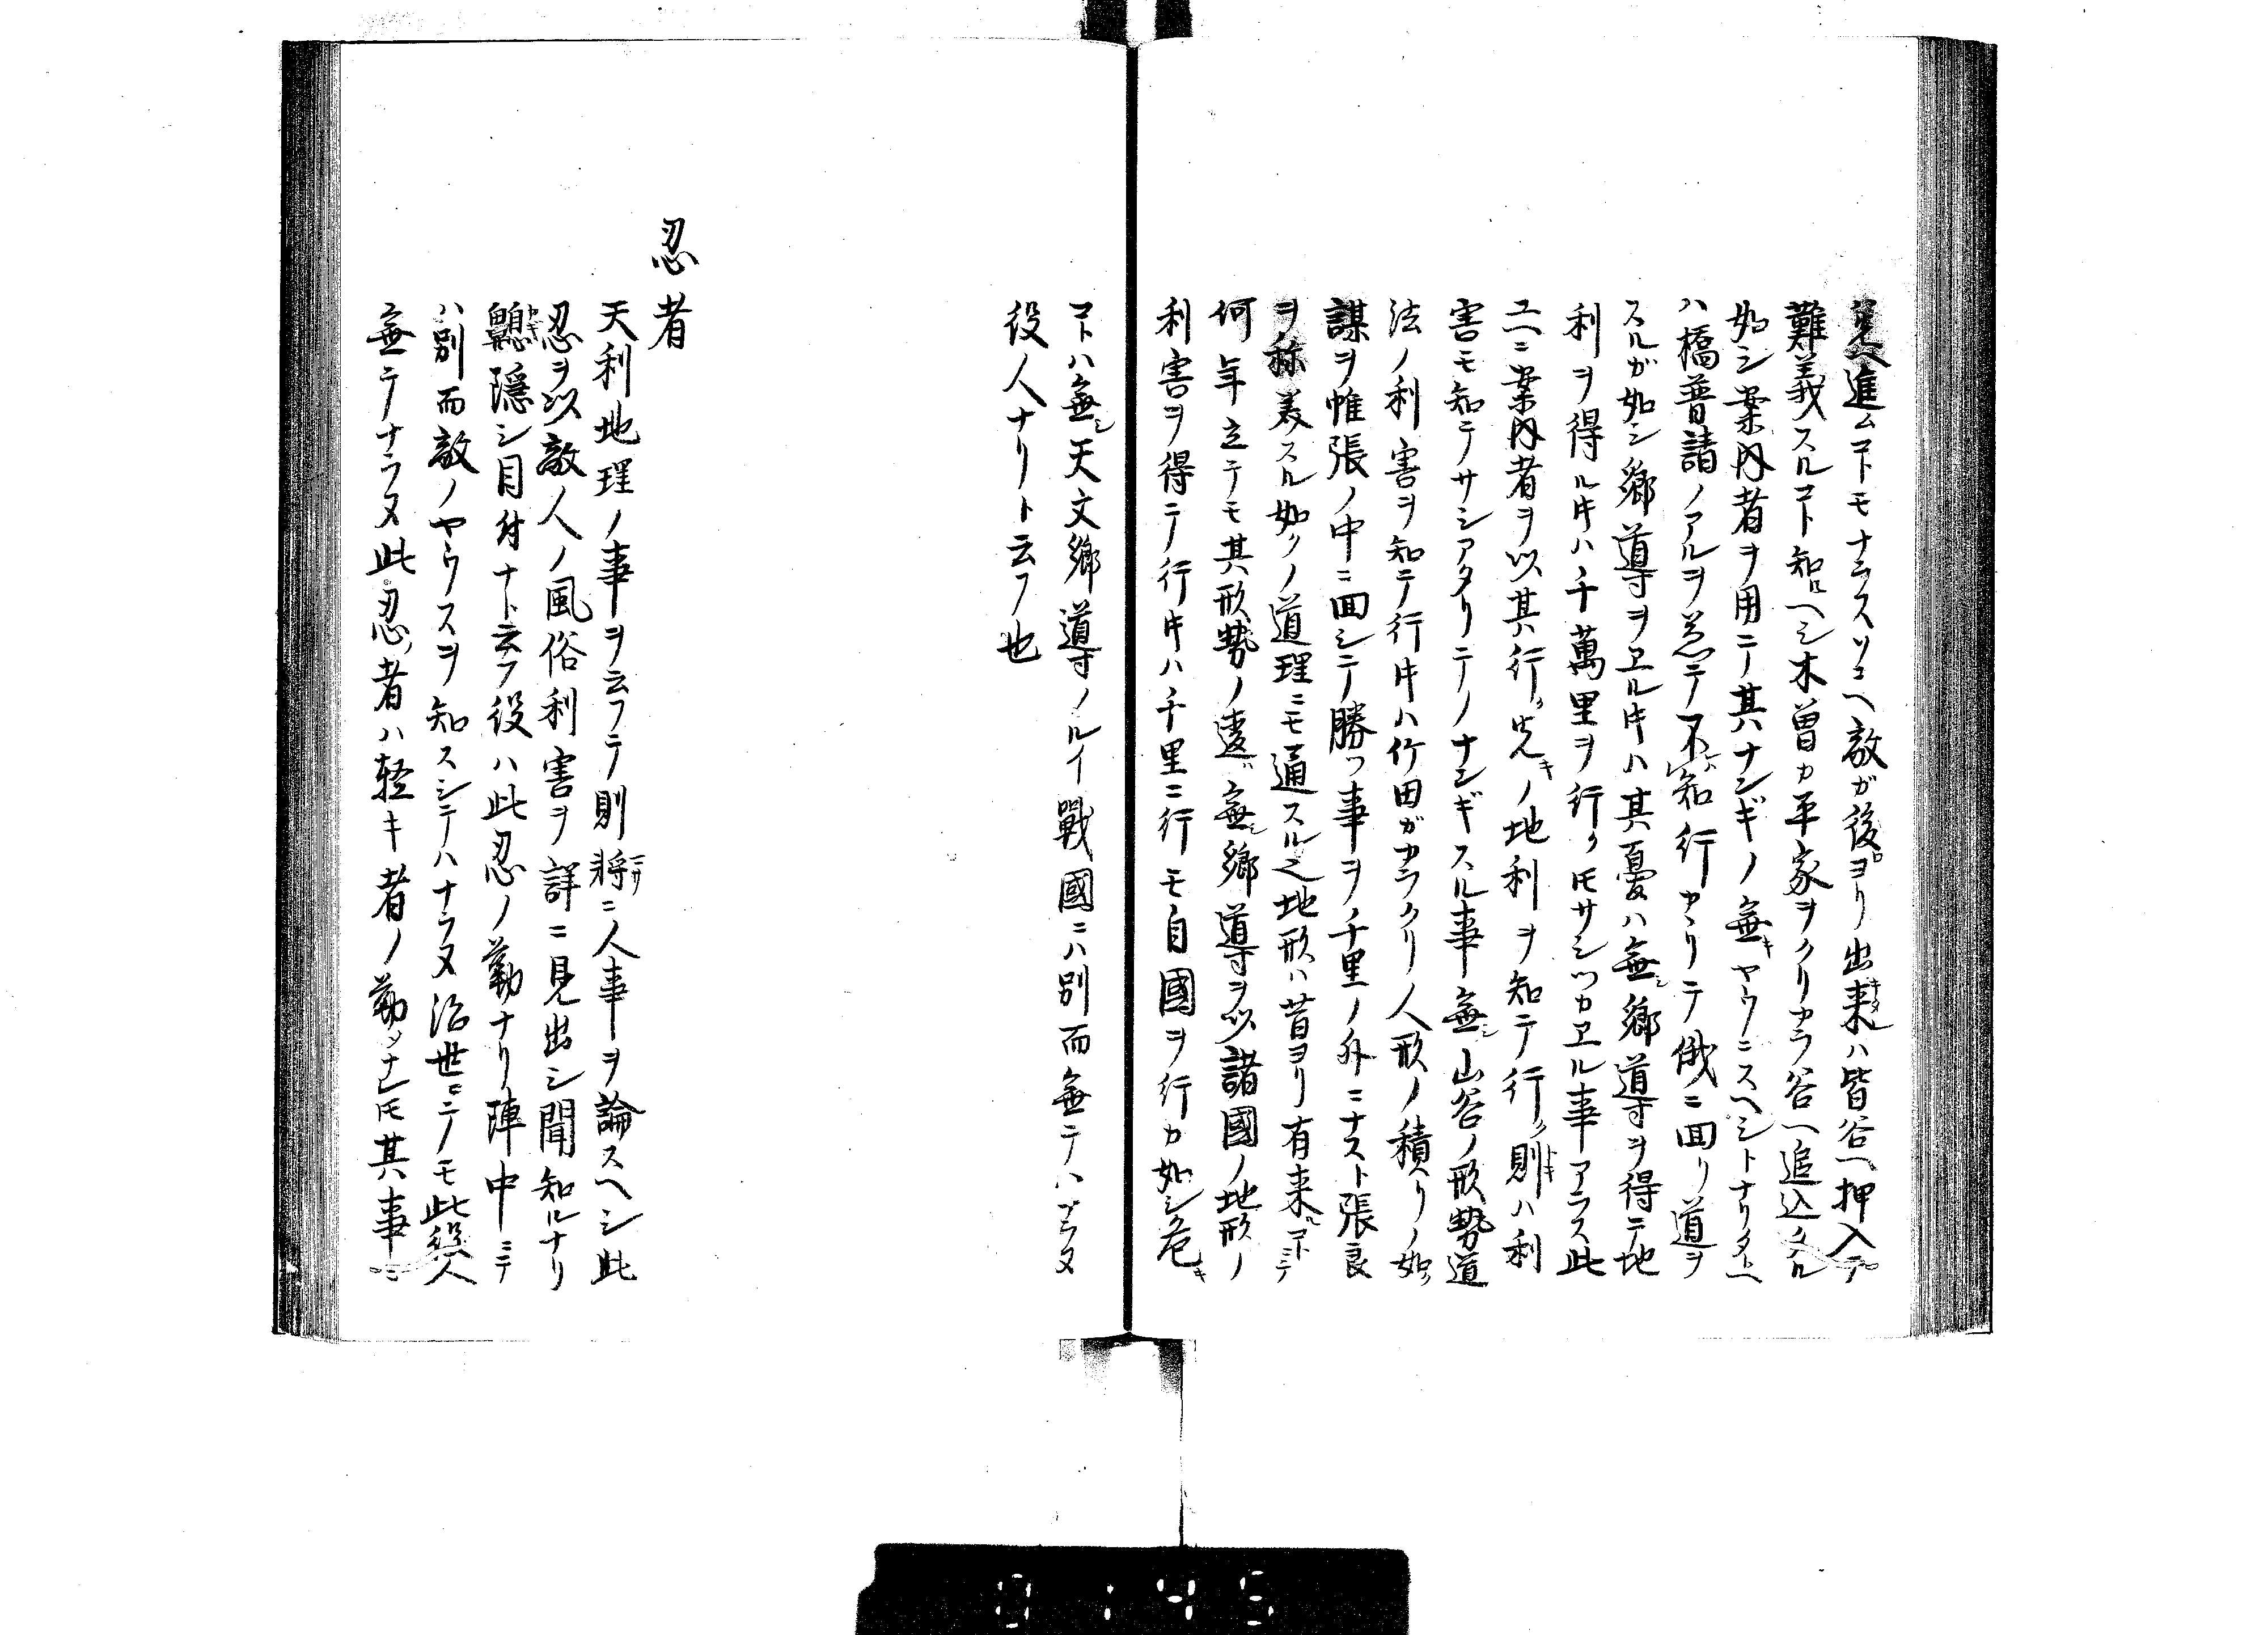 進ムヿモナラスソコヘ敵ガ後ロヨリ出来ハ皆谷ヘ押入テ
難義スルヿ知ルヘシ木曽カ平家ヲクリカラ谷ヘ追込タル
如シ案内者ヲ用ニテ其ナンギノ無キヤウニスヘシトナリタトヘ
ハ橋普請ノアルヲ忘テ不知行カヽリテ俄ニ回リ道ヲ
スルガ如シ郷導ヲヱル㐧ハ其憂ハ無シ郷導ヲ得テ地
利ヲ得ル𪜈ハ千萬里ヲ行ク𪜈サシツカヱル事アラス此
ユヘニ案内者ヲ以其行ク先キノ地利ヲ知テ行ク則ハ利
害モ知テサシアタリテノナンギスル事無シ山谷ノ形勢道
法ノ利害ヲ知テ行𪜈ハ竹田ガカラクリ人形ノ積リノ如ク
謀ヲ帷張ノ中ニ回シテ勝ツ事ヲノ千里ノ外ニナスト張良
ヲ称美スル如クノ道理ニモ通スル之地形ハ昔ヨリ有来ルヿニテ
何年立テモ其形勢ノ違ヒ無シ郷導ヲ以諸國ノ地形ノ
利害ヲ得テ行𪜈ハ千里ニ行モ自國ヲ行カ如シ危キ
ヿハ無シ天文郷導ノルイ戰國ニハ別而無テハナラヌ
役人ナリト云フ也
忍者
天利地理ノ事ヲ云フテ則將ニ人事ヲ論スヘシ此
忍ヲ以敵人ノ風俗利害ヲ詳ニ見出シ聞知ルナリ
隠シ目付ナト云フ役ハ此忍ノ勤ナリ陣中ニテ
ハ別而敵ノヤウスヲ知スシテハナラヌ治世ニテノモ此役人
無テナラヌ此忍者ハ軽キ者ノ勤メナレ𪜈其事ニ